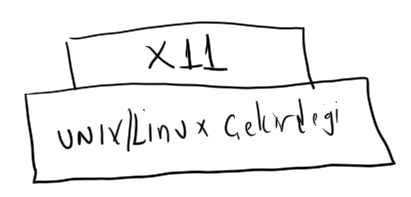 X11
UNIX/Linux Çekirdeği